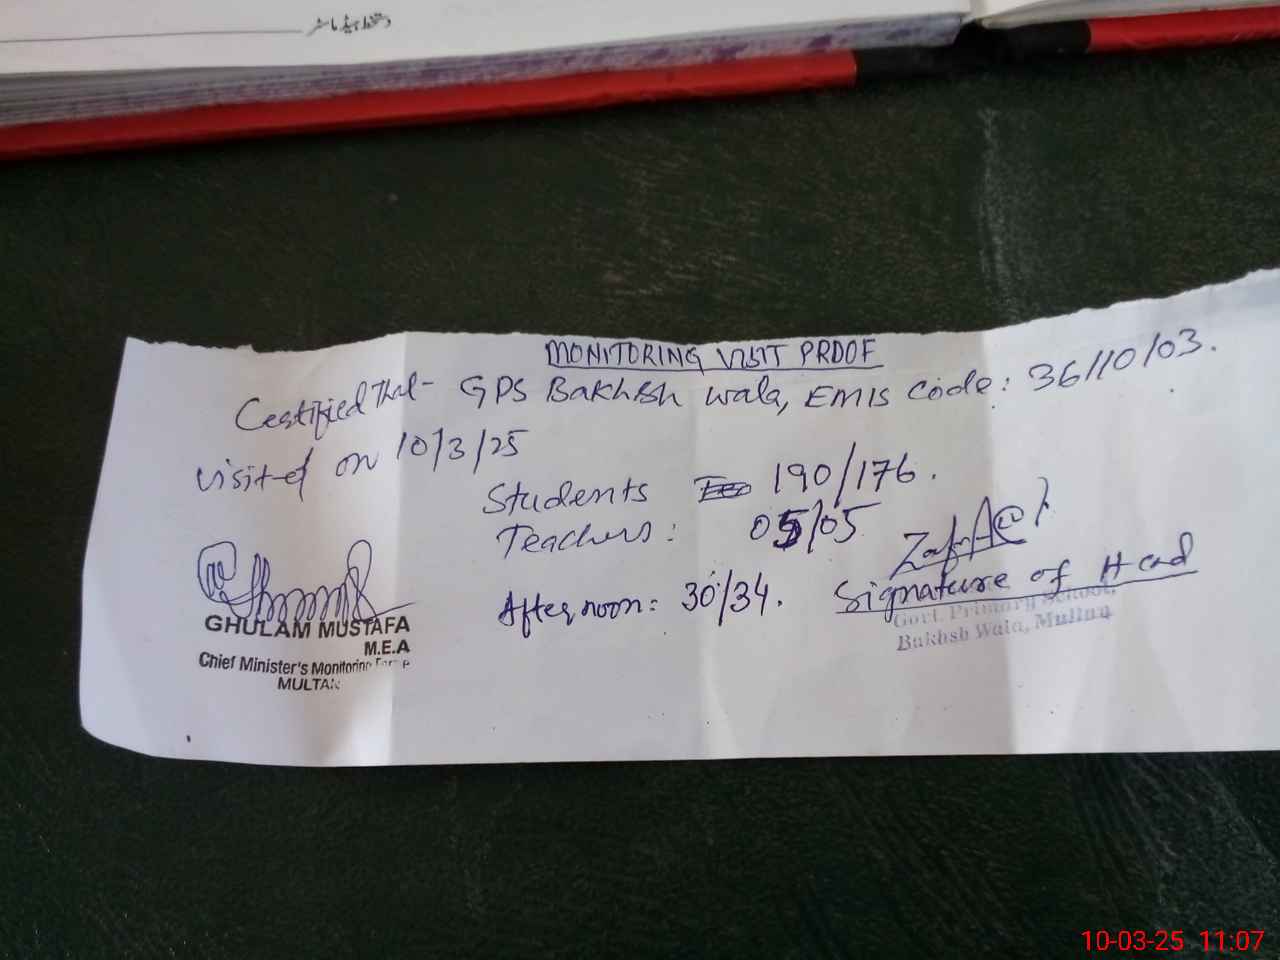 دستخط ہیڈ ماسٹر
MONITORING VISIT PROOF
Certified that GPS Bakhsh wala, EMIS Code: 36110103.
visited on 10/3/25
Students 190/176.
Teachers: 05/05
Afternoon: 30/34. Signature of Head
GHULAM MUSTAFA
M.E.A
Chief Minister's Monitoring Force
MULTAN
Govt. Primary School,
Bakhsh Wala, Multan
10-03-25 11:07